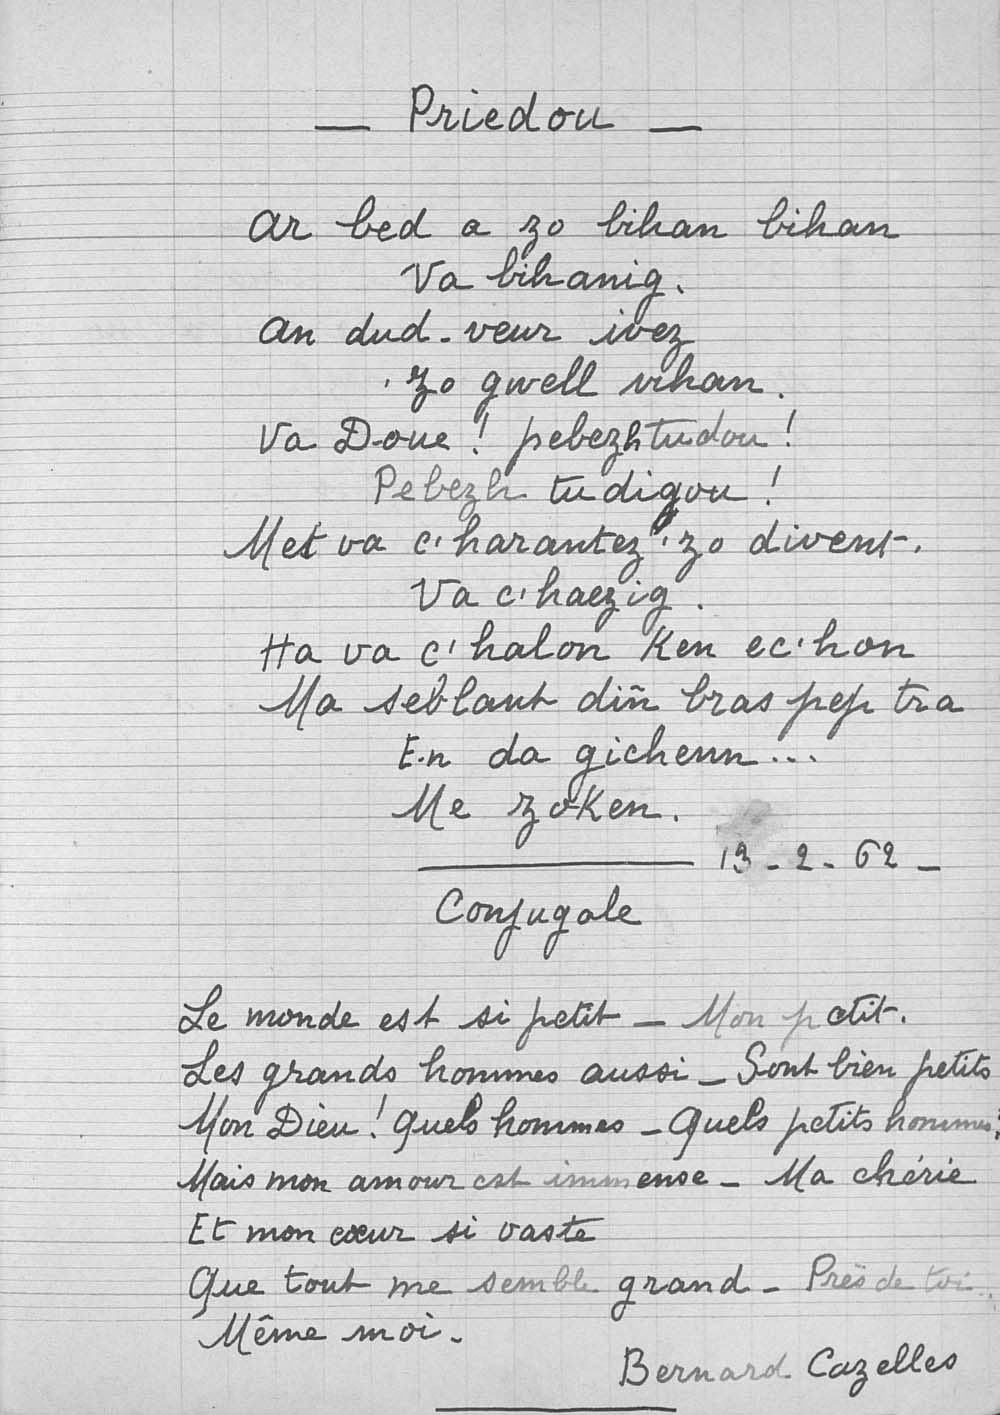 — Priedou —
Ar bed a zo bihan bihan
Va bihanig.
An dud-veur ivez
'zo gwell vihan.
Va Doue! pebezh tudou!
Pebezh tudigou!
Met va c'harantez 'zo divent.
Va c'haezig.
Ha va c'halon ken ec'hon
Ma seblant din̄ bras pep tra
E-n da gichenn...
Me zo-ken.
13-2-62-
Conjugale
Le monde est si petit — Mon petit.
Les grands hommes aussi — Sont bien petits
Mon Dieu! Quels hommes — Quels petits hommes!
Mais mon amour est immense — Ma chérie
Et mon cœur si vaste
Que tout me semble grand — Près de toi...
Même moi.
Bernard Cazelles